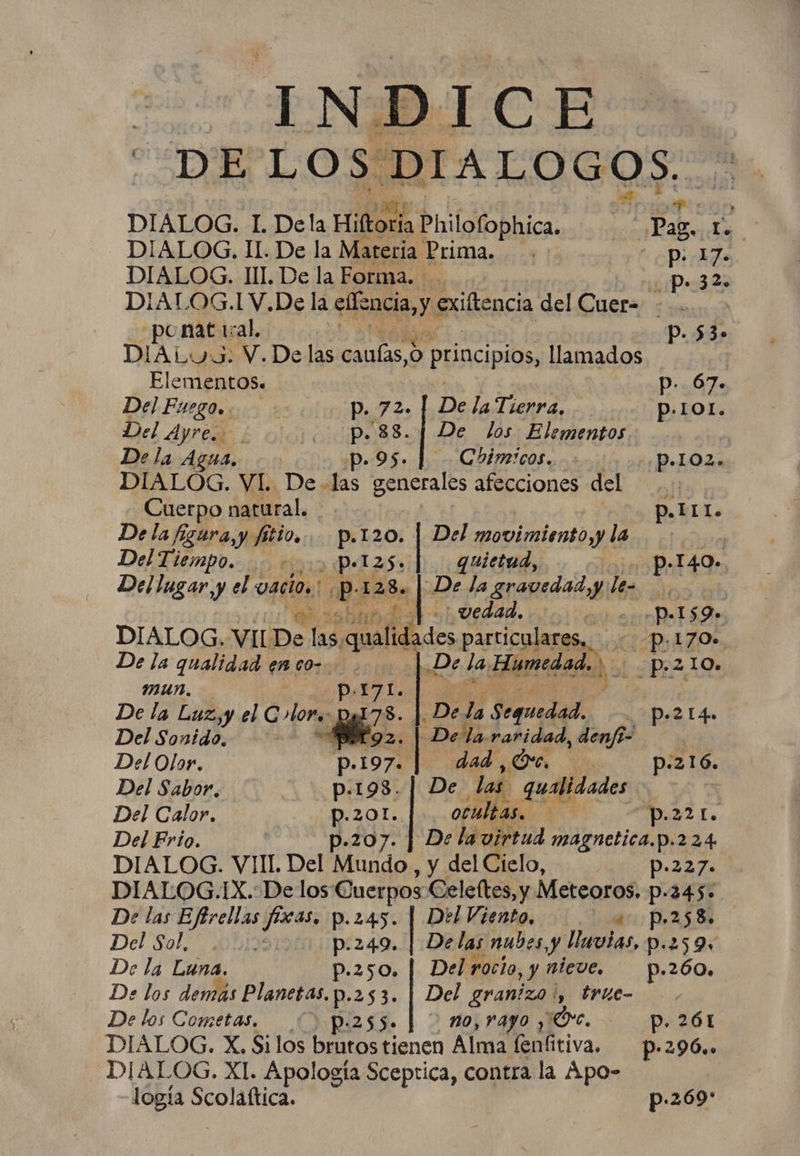 INDICE
DE LOS DIALOGOS.
DIALOG. I. De la Hiſtoria Philoſophica. Pag. 1.
DIALOG. II. De la Materia Prima. p. 17.
DIALOG. III. De la Forma. p. 32.
DIALOG. IV. De la eſſencia, y exiſtencia del Cuer-
po natural. p. 53.
DIALOG. V. De las cauſas, ò principios, llamados
Elementos. p. 67.
Del Fuego. p. 72. | De la Tierra. p.101.
Del Ayre. p. 88. | De los Elementos
De la Agua. p. 95. | Chimicos. p.102.
DIALOG. VI. De las generales afecciones del
Cuerpo natural. p.111.
De la figura, y ſitio. p.120. | Del movimiento, y la
Del Tiempo. p.125. | quietud, p.140.
Del lugar, y el vacio. p.128. | De la gravedad, y le-
vedad. p.159.
DIALOG. VII De las qualidades particulares. p.170.
De la qualidad en co- | De la Humedad. p.210.
mun. p.171.
De la Luz, y el Color. p.178. | De la Sequedad. p.214.
Del Sonido. 192. | De la raridad, denſi-
Del Olor. p.197. | dad, &c. p.216.
Del Sabor. p.198. | De las qualidades
Del Calor. p.201. | ocultas. p.221.
Del Frio. p.207. | De la virtud magnetica. p.224
DIALOG. VIII. Del Mundo, y del Cielo, p.227.
DIALOG. IX. De los Cuerpos Celeſtes, y Meteoros. p.245.
De las Eſtrellas fixas. p.245. | Del Viento. p.258.
Del Sol. p.249. | De las nubes, y lluvias, p.259.
De la Luna. p.250. | Del rocio, y nieve. p.260.
De los demás Planetas. p.253. | Del granizo, true-
De los Cometas. p.255. | no, rayo, &c. p. 261
DIALOG. X. Si los brutos tienen Alma ſenſitiva. p.296.
DIALOG. XI. Apología Sceptica, contra la Apo-
logía Scolaſtica. p.269.